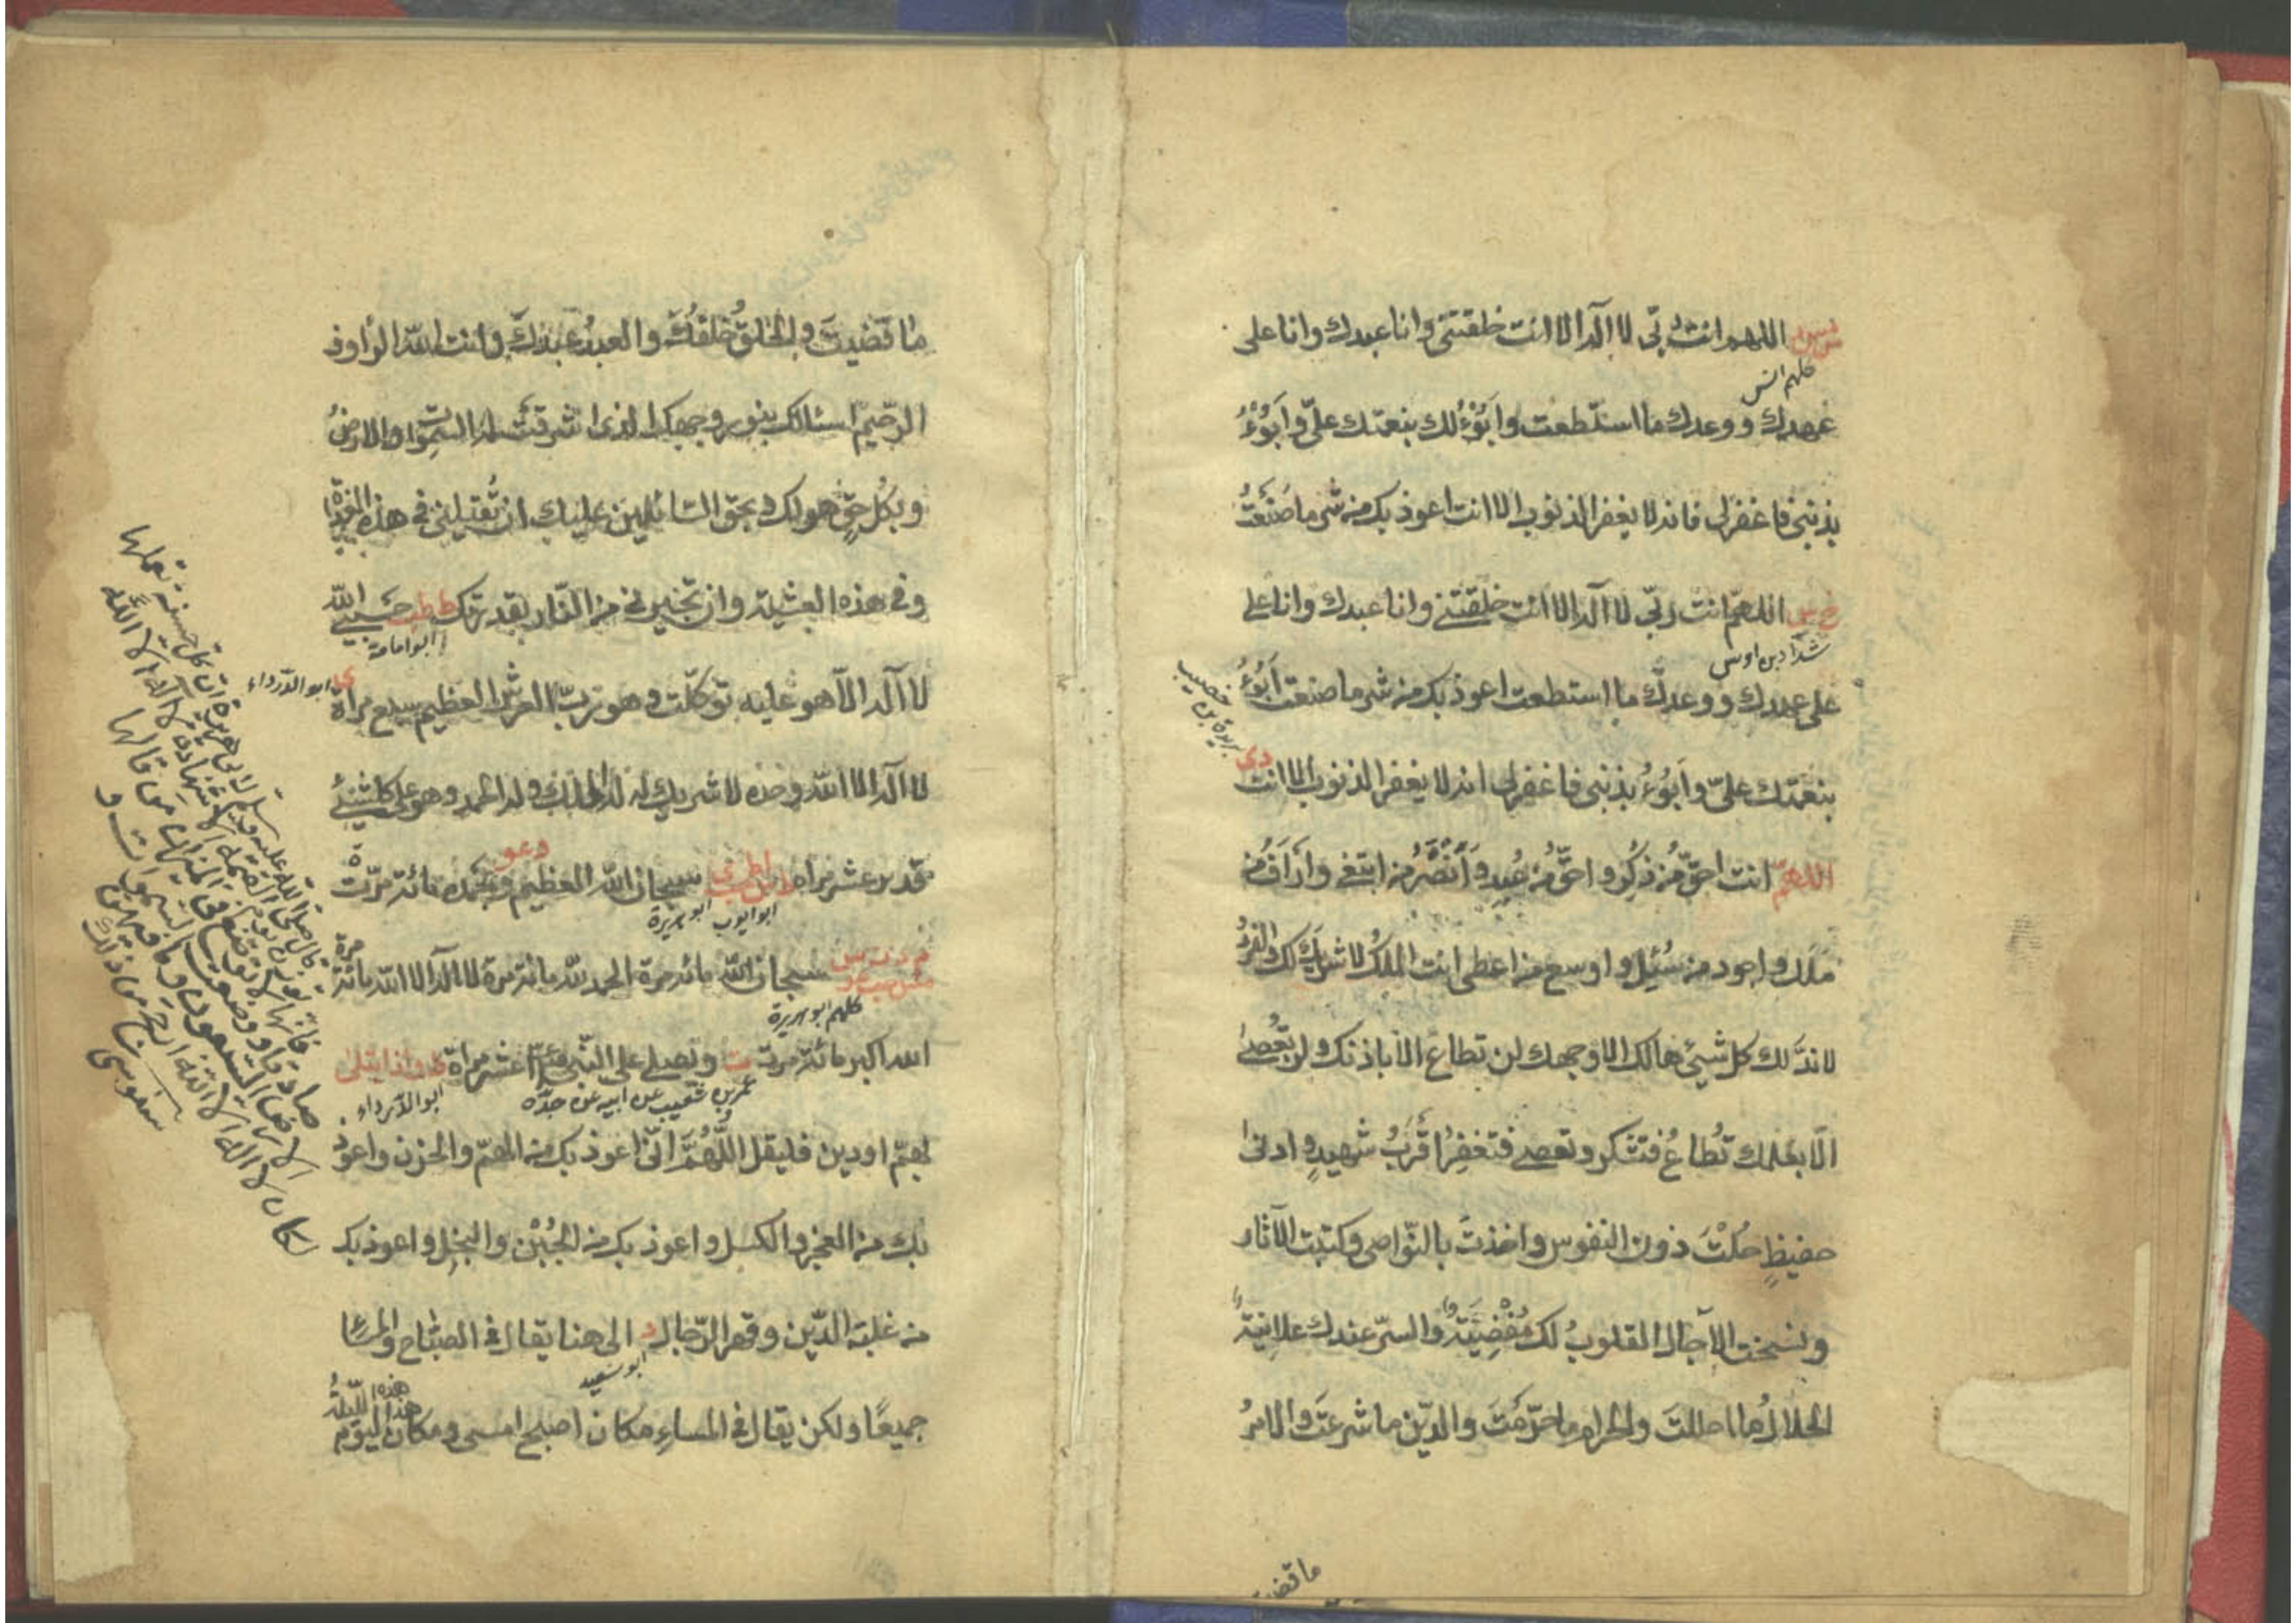 اللهم انت ربى لا اله الا انت خلقتنى وانا عبدك وانا على
كلهم انس
عهدك ووعدك ما استطعت وابوء لك بنعمتك علىّ وابوء
بذنبى فاغفرلى فانه لا يغفر الذنوب الا انت اعوذ بك من شر ما صنعت
خ س اللهم انت ربى لا اله الا انت خلقتنى وانا عبدك وانا على
شداد بن اوس
على عهدك ووعدك ما استطعت اعوذ بك من شر ما صنعت ابوء
بريدة بن خصيب
بنعمتك علىّ وابوء بذنبى فاغفرلى انه لا يغفر الذنوب الا انت دى
اللهم انت احقّ من ذكر واحقّ من عبد وانصر من ابتغى وارأف من
ملك واجود من سئل واوسع من اعطى انت الملك لا شريك لك والفرد
لا ندّ لك كل شىء هالك الا وجهك لن تطاع الا باذنك ولن تعصى
الا بعلمك تطاع فتشكر وتعصى فتغفر اقرب شهيد وادنى
حفيظ حلت دون النفوس واخذت بالنواصى وكتبت الآثار
ونسخت الآجال القلوب لك مفضية والسرّ عندك علانية
الحلال ما احللت والحرام ما حرّمت والدين ما شرعت والامر
ما قضيت
ما قضيت والخلق خلقك والعبد عبدك وانت الله الرؤف
الرحيم اسئالك بنور وجهك الذى اشرقت له السموات والارض
وبكل حق هو لك وبحق السائلين عليك ان تقيلنى فى هذه الغداة
وفى هذه العشية وان تجيرنى من النار بقدرتك ط طب حسبى الله
ابو امامة
لا اله الا هو عليه توكلت وهو رب العرش العظيم سبع مراة ى
ابو الدرداء
لا اله الا الله وحده لا شريك له له الملك وله الحمد وهو على كل شىء
قدير عشر مراة سبحان الله العظيم وبحمده مائة مرّة
ابو ايوب ابو هريرة
م د ت س سبحان الله مائة مرة الحمد لله مائة مرة لا اله الا الله مائة مرة
كلهم ابو هريرة
الله اكبر مائة مرة ت ويصلى على النبى عشر مراة ط واذا ابتلى
عمر بن شعيب عن ابيه عن جدّه ابو الدرداء
بهمّ او دين فليقل اللهم انى اعوذ بك من الهمّ والحزن واعوذ
بك من العجز والكسل واعوذ بك من الجبن والبخل واعوذ بك
من غلبة الدّين وقهر الرجال د الى هنا يقال فى الصباح والمساء
ابو سعيد
جميعا ولكن يقال فى المساء مكان اصبح امسى ومكان هذا اليوم هذه الليلة